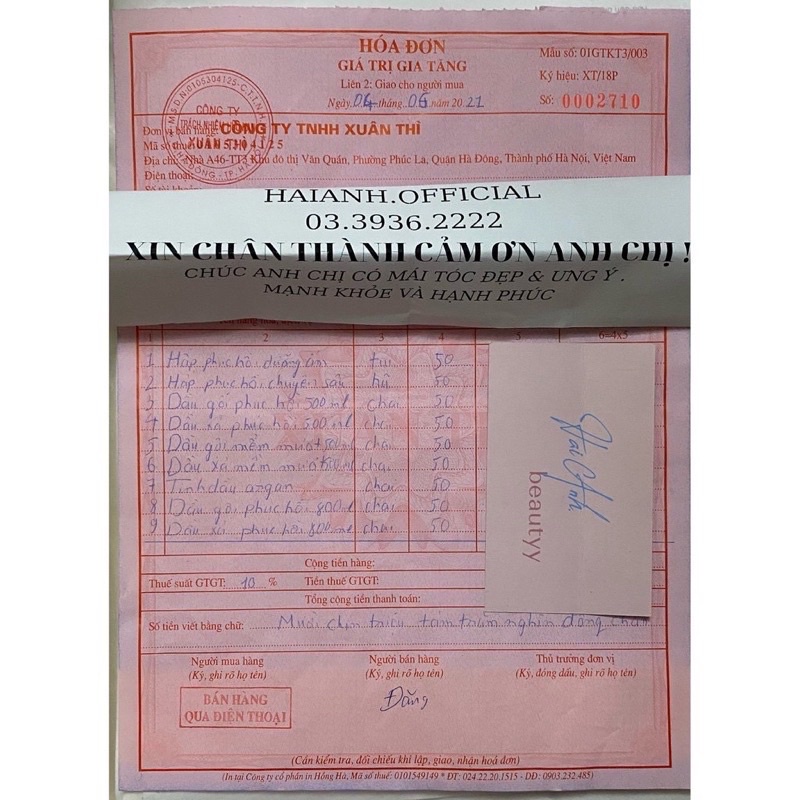 HÓA ĐƠN
GIÁ TRỊ GIA TĂNG
Liên 2: Giao cho người mua
Ngày 04 tháng 06 năm 2021
Mẫu số: 01GTKT3/003
Ký hiệu: XT/18P
Số: 0002710
M.S.D.N:0105304125-C.T.T.N.H.H
CÔNG TY
TRÁCH NHIỆM HỮU HẠN
XUÂN THÌ
HÀ ĐÔNG - TP. HÀ NỘI
Đơn vị bán hàng: CÔNG TY TNHH XUÂN THÌ
Mã số thuế: 0105304125
Địa chỉ: Nhà A46-TT3 Khu đô thị Văn Quán, Phường Phúc La, Quận Hà Đông, Thành phố Hà Nội, Việt Nam
Điện thoại:
Số tài khoản
HAIANH.OFFICIAL
03.3936.2222
XIN CHÂN THÀNH CẢM ƠN ANH CHỊ !
CHÚC ANH CHỊ CÓ MÁI TÓC ĐẸP & ƯNG Ý .
MẠNH KHỎE VÀ HẠNH PHÚC
1 2 3 4 5 6=4x5
1 Hấp phục hồi dưỡng ẩm túi 50
2 Hấp phục hồi chuyên sâu hũ 50
3 Dầu gội phục hồi 500ml chai 50
4 Dầu xả phục hồi 500ml chai 50
5 Dầu gội mềm mượt 800ml chai 50
6 Dầu xả mềm mượt 800ml chai 50
7 Tinh dầu argan chai 50
8 Dầu gội phục hồi 800ml chai 50
9 Dầu xả phục hồi 800ml chai 50
Hải Anh
beautyy
Cộng tiền hàng:
Thuế suất GTGT: 10 % Tiền thuế GTGT:
Tổng cộng tiền thanh toán:
Số tiền viết bằng chữ: Mười chín triệu tám trăm nghìn đồng chẵn
Người mua hàng
(Ký, ghi rõ họ tên)
Người bán hàng
(Ký, ghi rõ họ tên)
Thủ trưởng đơn vị
(Ký, đóng dấu, ghi rõ họ tên)
BÁN HÀNG
QUA ĐIỆN THOẠI
Đăng
(Cần kiểm tra, đối chiếu khi lập, giao, nhận hoá đơn)
(In tại Công ty cổ phần in Hồng Hà, Mã số thuế: 0101549149 * ĐT: 024.22.20.1515 - DĐ: 0903.232.485)